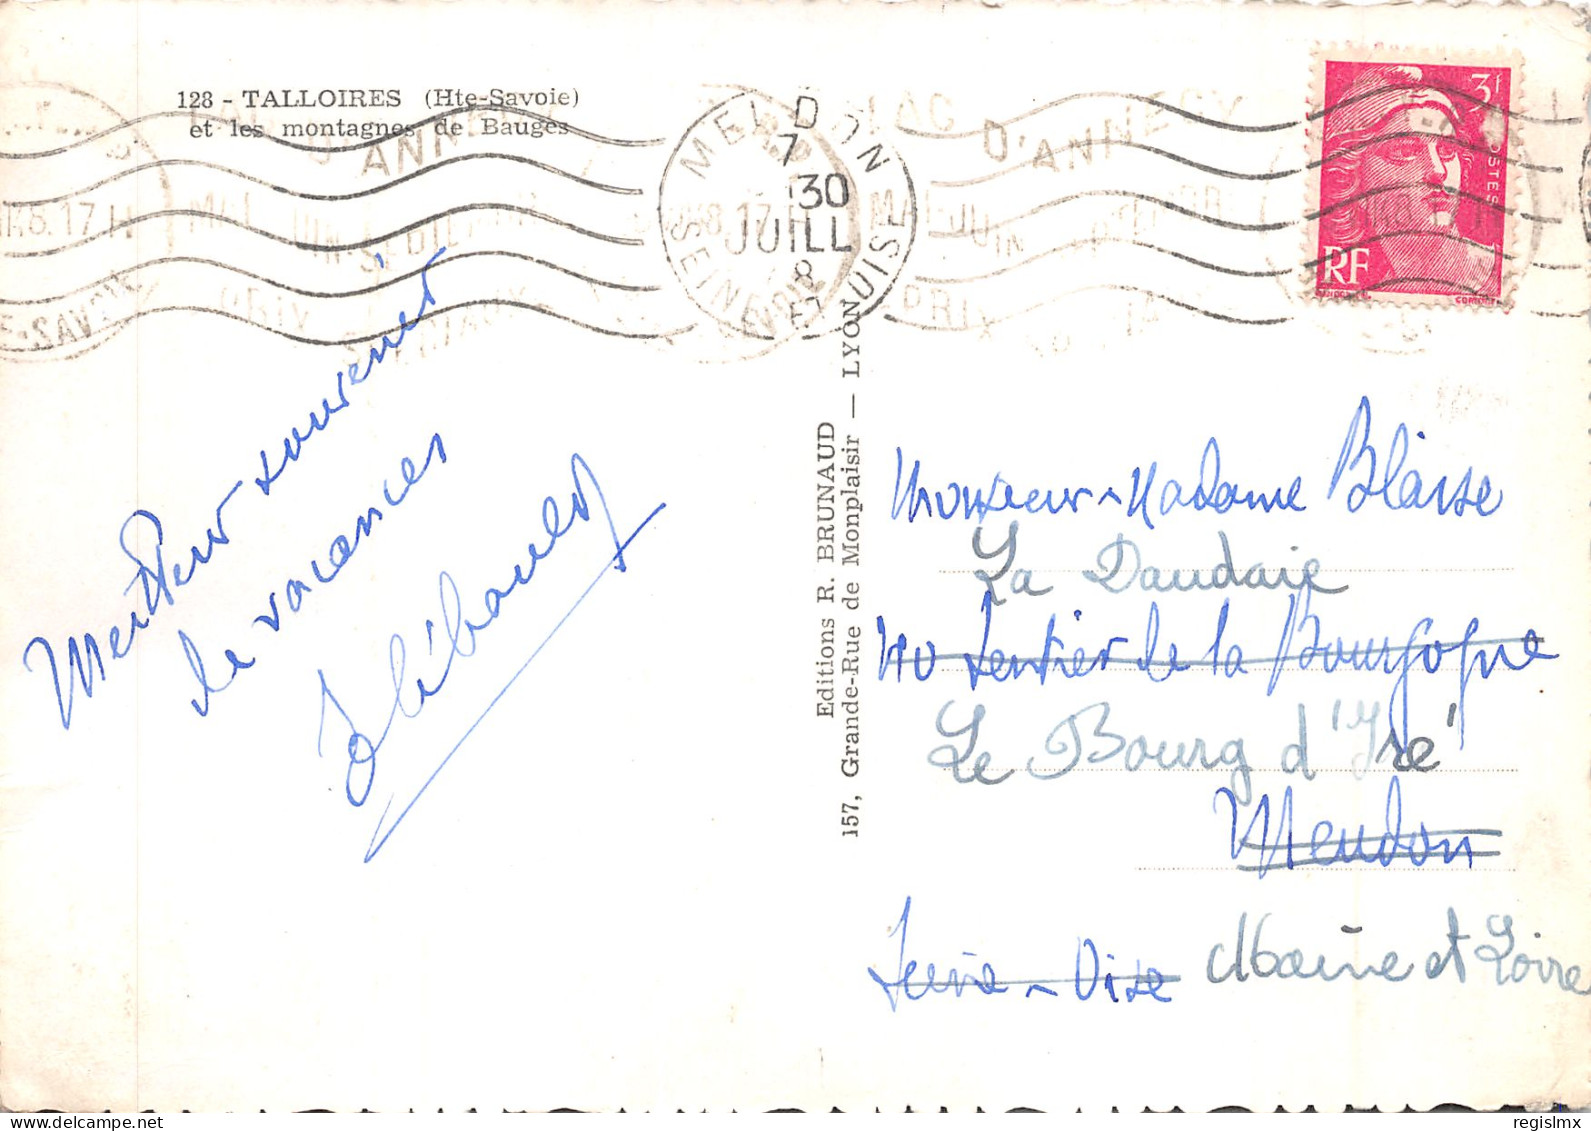 128 - TALLOIRES (Hte-Savoie)
et les montagnes de Bauges
D'ANNECY
MEUDON
7 30
JUILL
SEINE OISE
LAC
D'ANNECY
PRIX
3f
POSTES
RF
Meilleur souvenir
de vacances
Thébault
Editions R. BRUNAUD
157, Grande-Rue de Monplaisir — LYON
Monsieur - Madame Blaise
La Daudaie
40 Sentier de la Bourgogne
Le Bourg d'Iré
Meudon
Seine - Oise
Maine et Loire
delcampe.net
regislmx